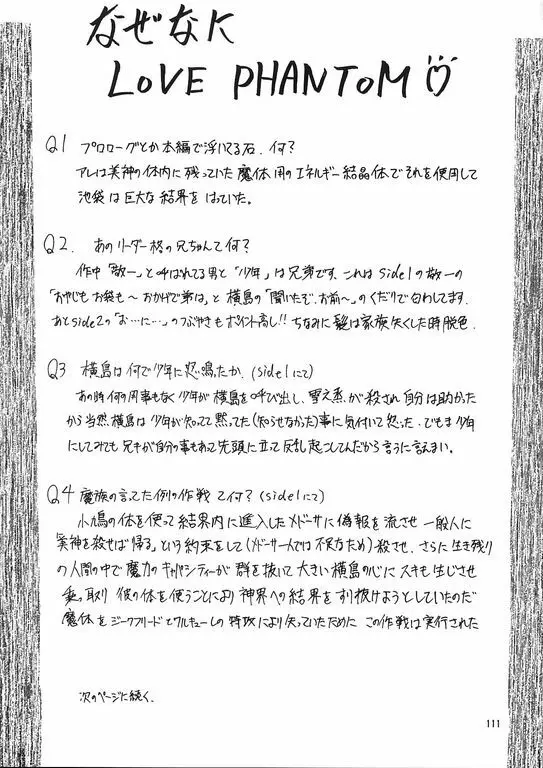 なぜなに
LOVE PHANTOM
Q1 プロローグとか本編で浮いてる石、何?
アレは美神の体内に残っていた魔体用のエネルギー結晶体でそれを使用して
池袋は巨大な結界をはっていた。
Q2. あのリーダー格の兄ちゃんて何?
作中「敬一」と呼ばれてる男と「少年」は兄弟です。これはside1の敬一の
「おやじもお袋も〜おかげで弟は」と横島の「聞いたぞ、お前〜」のくだりで匂わしてます。
あとside2の「お…に…」のつぶやきもポイント高し!!ちなみに髪は家族失くした時脱色。
Q3 横島は何で少年に怒鳴ったか。(side1にて)
あの時何の用事もなく少年が横島を呼び出し、雪之丞が殺され自分は助かった
から当然横島は少年が知ってて黙ってた(知らせなかった)事に気付いて怒った。でもま少年
にしてみても兄キが自分の事もあって先頭に立って反乱起こしてんだから言うに言えまい。
Q4 魔族の言てた例の作戦て何?(side1にて)
小鳩の体を使って結界内に進入したメドーサに偽報を流させ一般人に
「美神を殺せば帰る」という約束をして(メドーサ一人では不可なため)殺させ、さらに生き残り
の人間の中で魔力のキャパシティーが群を抜いて大きい横島の心にスキも生じさせ
乗っ取り 彼の体を使うことにより神界への結界をすり抜けようとしていたのだ
魔体をジークフリードとワルキューレの特攻により失っていたために この作戦は実行された
次のページに続く.
111